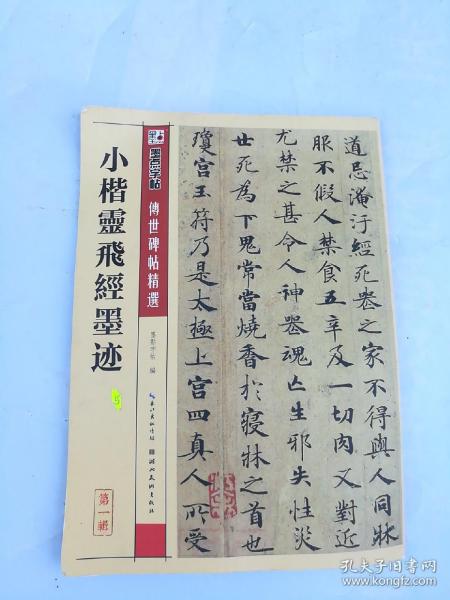 小楷靈飛經墨迹
5
第一輯
墨点字帖
傳世碑帖精選
墨點字帖 編
長江出版傳媒
湖北美術出版社
道忌淹汙經死喪之家不得與人同牀
服不假人禁食五辛及一切肉又對近
尤禁之甚令人神器魂亡生邪失性災
世死為下鬼常當燒香於寢牀之首也
瓊宮玉符乃是太極上宮四真人所受
孔夫子旧书网
www.kongfz.com